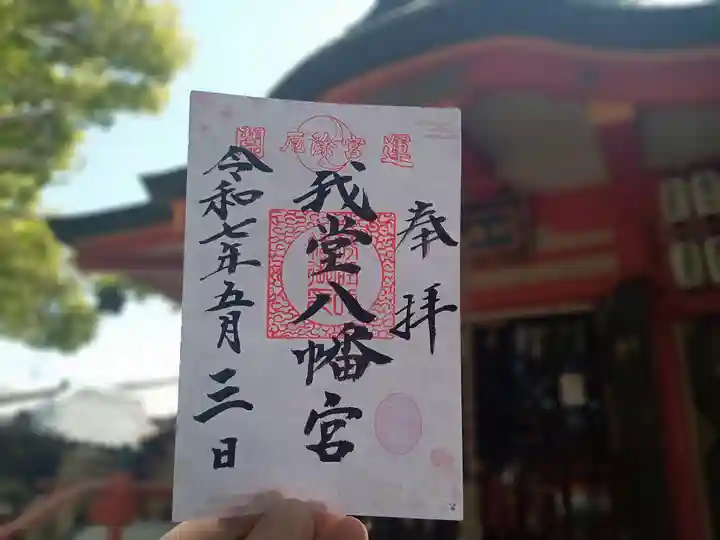 開 厄除宮 運
奉拝
我堂八幡宮
令和七年五月三日